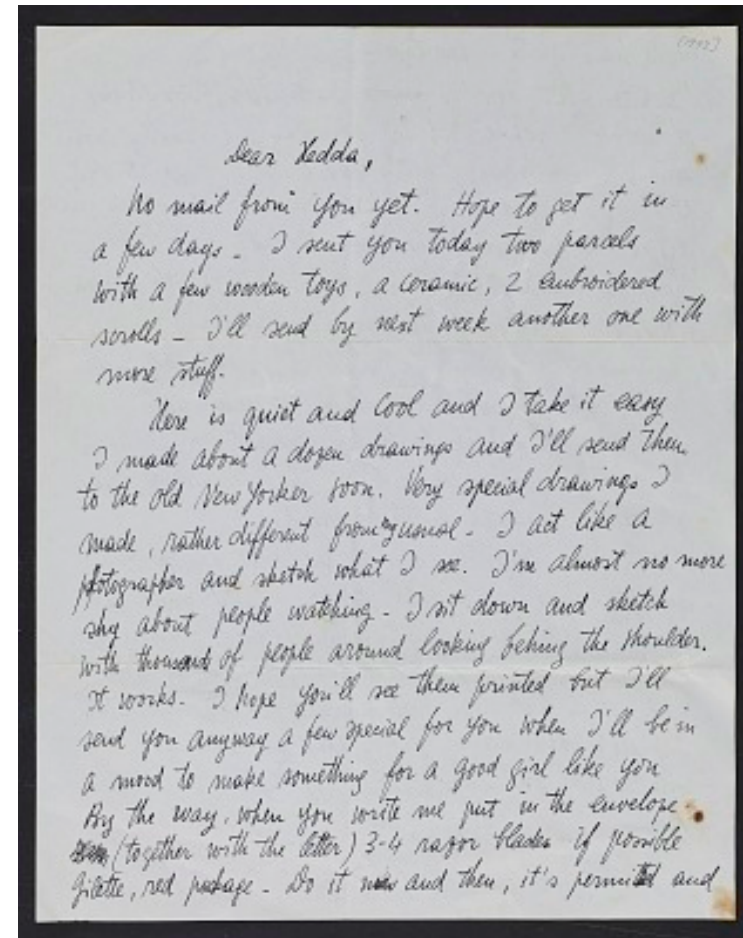 [1943]
Dear Hedda,
No mail from you yet. Hope to get it in
a few days _ I sent you today two parcels
with a few wooden toys, a ceramic, 2 embroidered
scrolls _ I'll send by next week another one with
more stuff.
Here is quiet and cool and I take it easy
I made about a dozen drawings and I'll send them
to the old New Yorker soon. Very special drawings I
made, rather different from my usual _ I act like a
photographer and sketch what I see. I'm almost no more
shy about people watching _ I sit down and sketch
with thousands of people around looking behing the shoulder.
It works. I hope you'll see them printed but I'll
send you anyway a few special for you when I'll be in
a mood to make something for a good girl like you
By the way, when you write me put in the envelope
(together with the letter) 3-4 razor blades if possible
Gilette, red package _ Do it now and then, it's permitted and